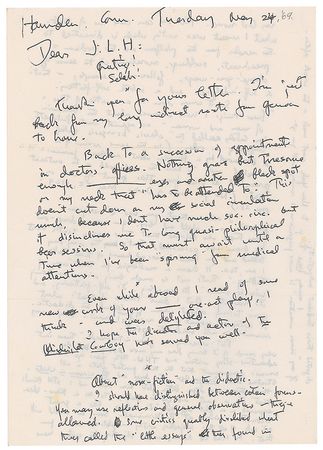 Hamden Conn. Tuesday Nov 24, '69
Dear J.L.H:
Thank you for your letter. I'm just
back from my very indirect route from Genoa
to home.
Back to a succession of appointments
in doctors' offices. Nothing grave but tiresome
enough, eyes, and another black spot
on my neck that "has to be attended to". This
doesn't cut down on my social circulation
much, because I don't have much soc. circ. but
it disinclines me to long quasi-philosophical
beer sessions. So that must await until a
time when I've been sprung from medical
attentions.
Even while abroad I read of some
new work of yours one-act play, I
think – and was delighted.
I hope the director and actors of
Midnight Cowboy has served you well.
About "non-fiction" and the didactic.
I should have distinguished between certain forms.
You may use reflexions and general observations – they're
allowed. Some critics greatly disliked what
they called the "little essays" they found in